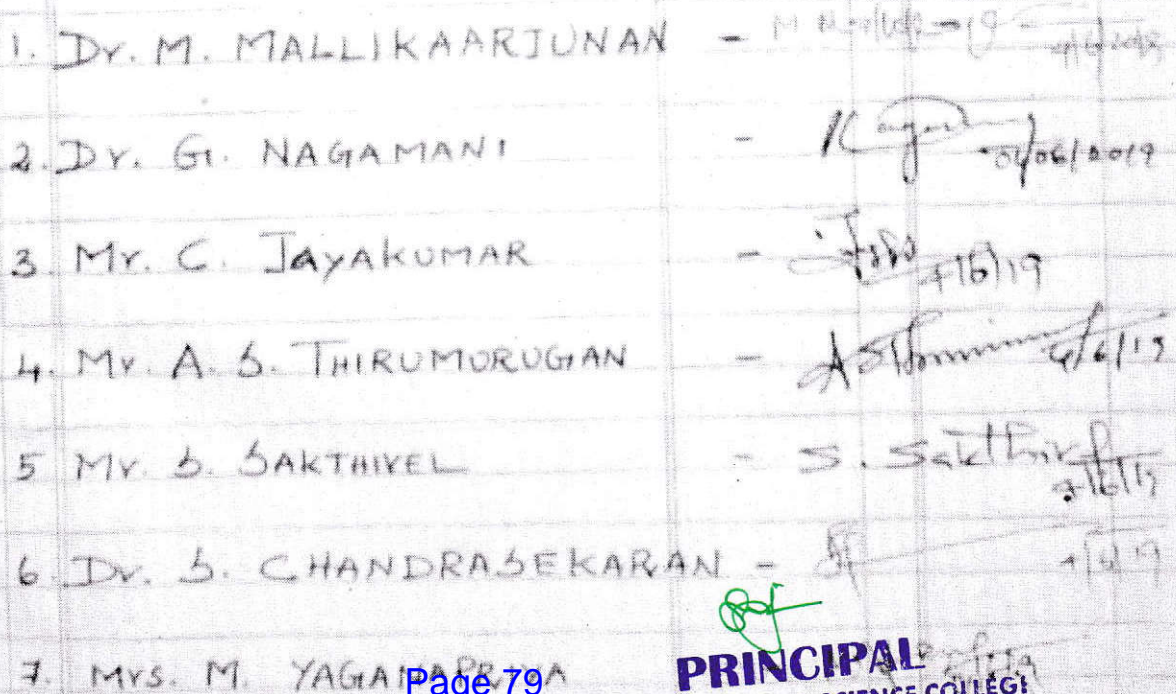 1. Dr. M. MALLIKAARJUNAN -
2. Dr. G. NAGAMANI -
3. Mr. C. JAYAKUMAR - 7/6/19
4. Mr. A. S. THIRUMURUGAN -
5 Mr. S. SAKTHIVEL - S. Sakthivel 7/6/19
6. Dr. S. CHANDRASEKARAN -
7. Mrs. M. YAGAMAPRIYA
Page 79
PRINCIPAL
SCIENCE COLLEGE